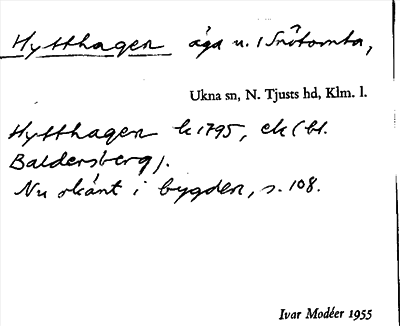 Hytthagen äga u. 1 Snôtomta,
Ukna sn, N. Tjusts hd, Klm. l.
Hytthagen k 1795, ek (bl.
Baldersberg).
Nu okänt i bygden, s. 108.
Ivar Modéer 1955